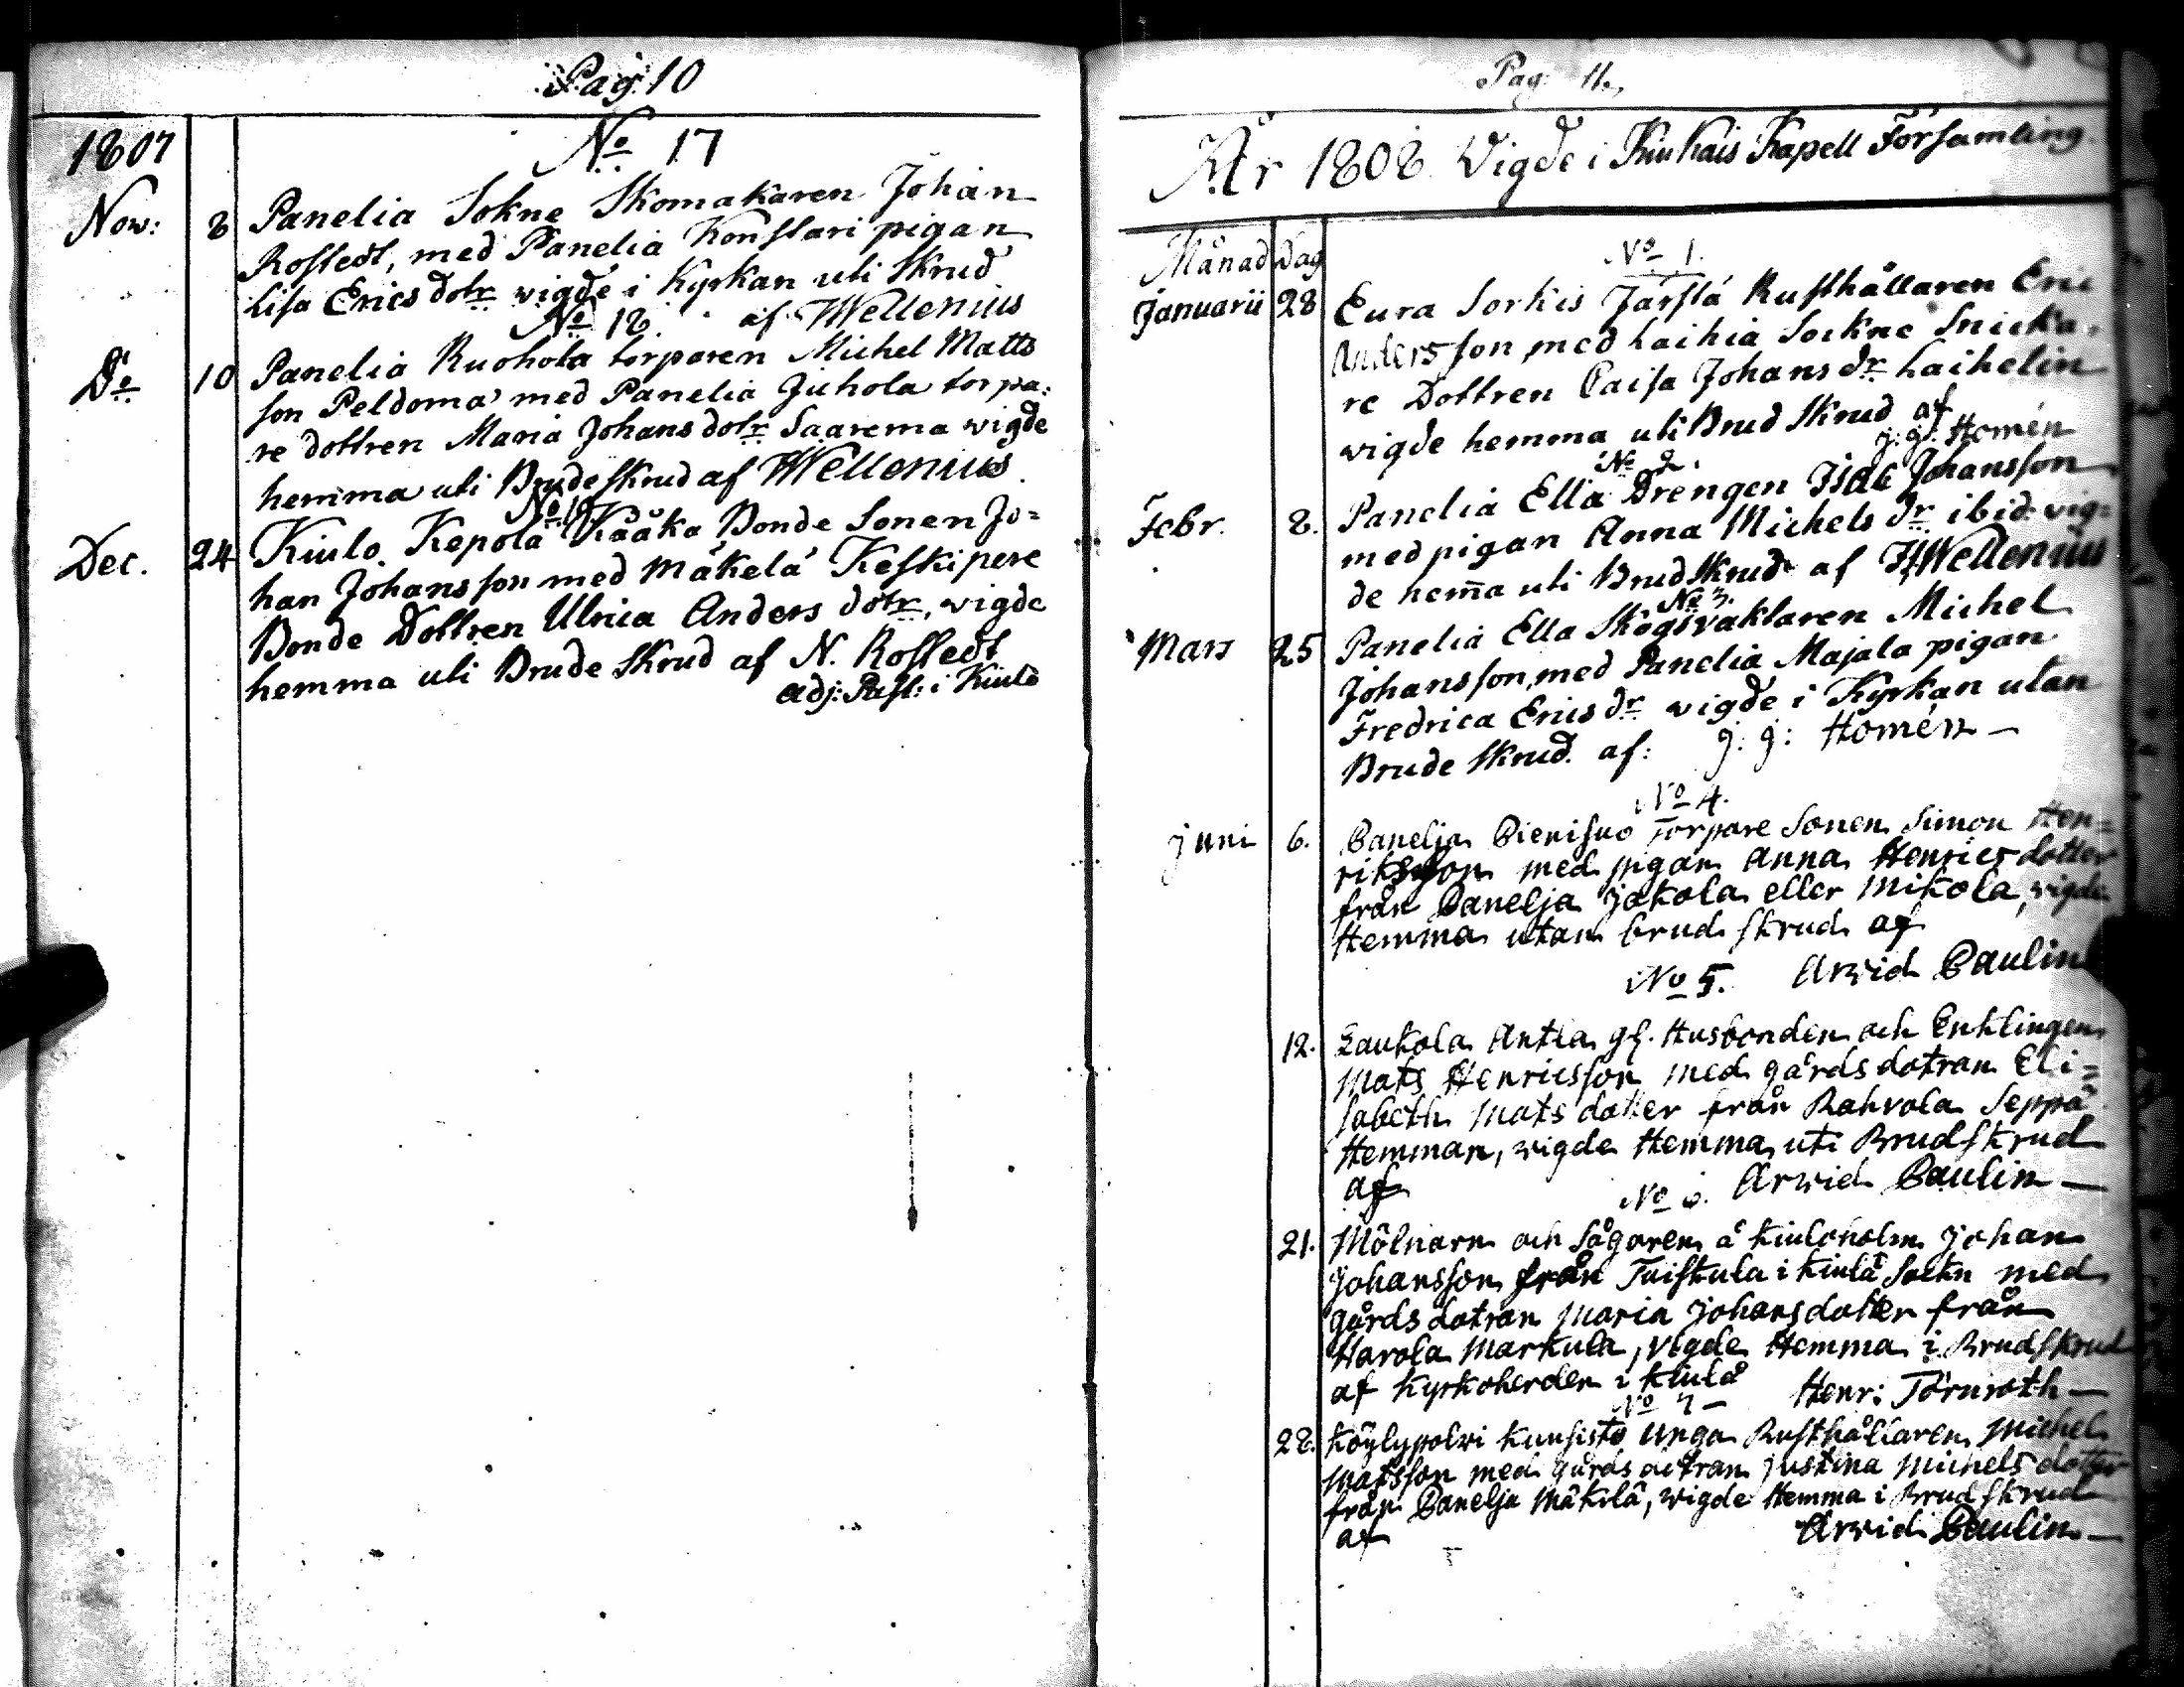 Pag: 10
1807
No 17
Now: 8 Panelia Sokne Skomakaren Johan
Rosstedt, med Panelia Konstari pigan
Lisa Ericsdotr wigde i Kyrkan uti Skrud
No 18. af JWellenius
Do 10 Panelia Ruohola torparen Michel Matts
son Peldoma med Panelia Juhola torpa:
re dottren Maria Johansdotr Saarema wigde
hemma uti Brudeskrud af JWellenius
No 19
Dec. 24 Kiulo Kepola Kååka Bonde Sonen Jo=
han Johansson med Mäkelä Keskipere
Bonde Dottren Ulrica Anders dotr, wigde
hemma uti Brude Skrud af N. Rosstedt
adj: Past: i Kiulo
Pag: 11.
År 1808 Wigde i Kiukais Kapell Församling
Månad Dag
No 1.
Januarii 28 Eura Sorkis Jarsta Rusthållaren Eric
Andersson, med Laihia Sockne Snicka=
re Dottren Caisa Johansdr Laihelin
wigde hemma uti Brud Skrud af
j: g: Homén
No 2.
Febr. 8. Panelia Ella Drengen Isac Johansson
med pigan Anna Michels dr ibid: wig=
de hem̅a uti Brudskrud af JWellenius
No 3.
Mars 25 Panelia Ella Skogsvaktaren Michel
Johansson, med Panelia Majala pigan
Fredrica Erics dr wigde i Kyrkan utan
Brude Skrud. af: j: g: Homén —
No 4.
juni 6. Panelja Pienisuo Torpare Sonen Simon Hen=
riksson med pigan Anna Henricsdotter
från Panelja Jakola eller Mikola, wigde
Hemma utan brud skrud af
No 5. Arwid Paulin
12. Laukola Antla gl. Husbonden och Enklingen
Mats Henricsson med gårds dotran Eli=
sabeth Mats dotter från Rahvola Seppä
Hemman, wigde Hemma uti Brudskrud
af Arwid Paulin —
No 6.
21. Mölnarn och Sågaren å Kiuloholm Johan
Johansson från Tuiskula i Kiulå Sockn med
gårds dotran Maria Johansdotter från
Harola Markula, vigde Hemma i Brudskrud
af Kyrkoherden i Kiulå Henr: Törnroth —
No 7 —
28. Köylypolvi Kuusisto Unga Rusthållaren Michel
Matsson med gårds dotran Justina Michels dotter
från Panelja Mäkelä, wigde Hemma i Brudskrud
af Arwid Paulin —